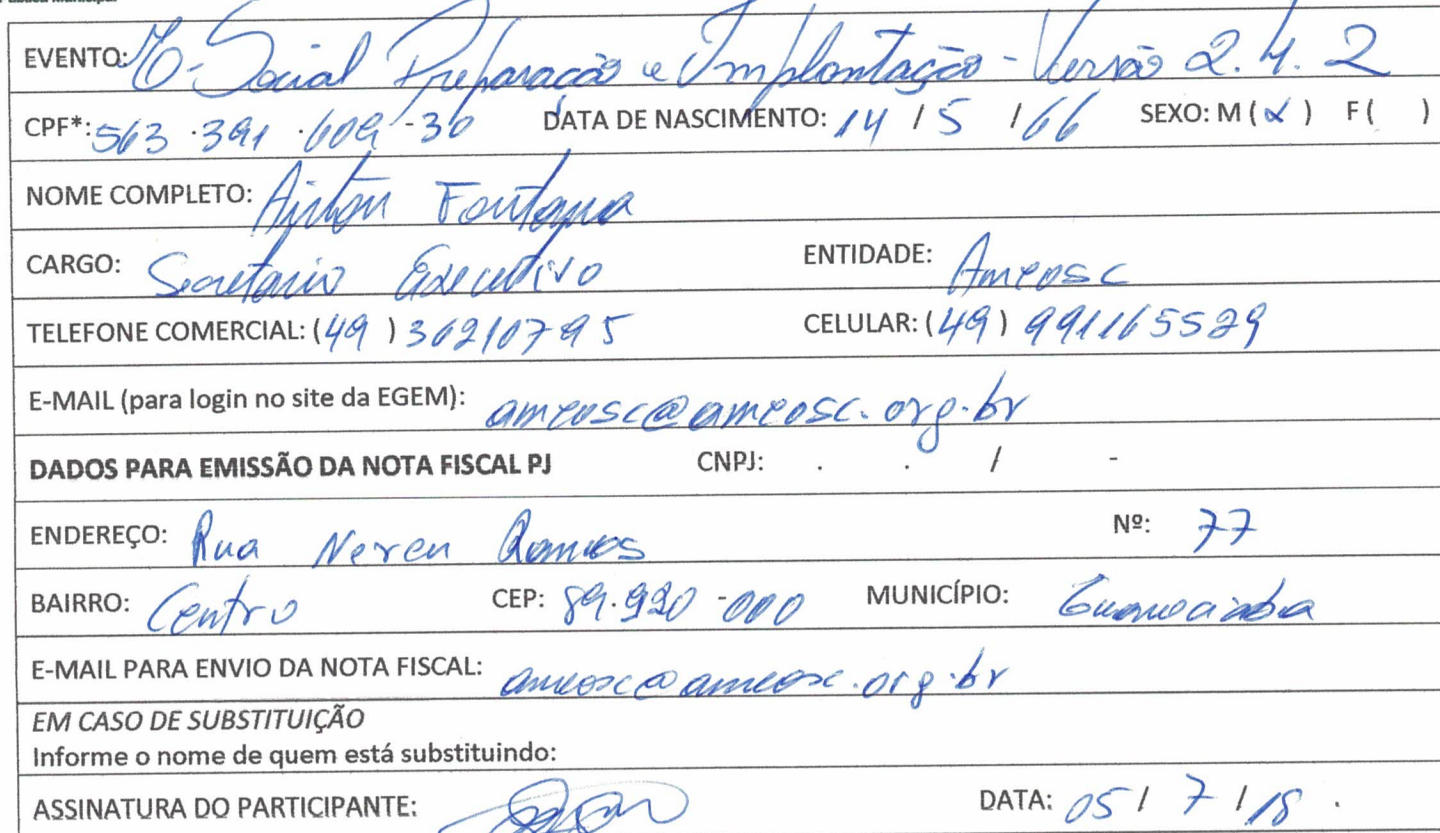 EVENTO: E-Social Preparação e Implantação - Versão 2.4.2
CPF*: 563 .391 .609 -30 DATA DE NASCIMENTO: 14 / 5 / 66 SEXO: M (x) F ( )
NOME COMPLETO: Airton Fontana
CARGO: Secretario Executivo ENTIDADE: Ameosc
TELEFONE COMERCIAL: (49) 36210795 CELULAR: (49) 991165529
E-MAIL (para login no site da EGEM): ameosc@ameosc.org.br
DADOS PARA EMISSÃO DA NOTA FISCAL PJ CNPJ: . . / -
ENDEREÇO: Rua Nereu Ramos Nº: 77
BAIRRO: Centro CEP: 89.920-000 MUNICÍPIO: Guaraciaba
E-MAIL PARA ENVIO DA NOTA FISCAL: ameosc@ameosc.org.br
EM CASO DE SUBSTITUIÇÃO
Informe o nome de quem está substituindo:
ASSINATURA DO PARTICIPANTE: DATA: 05 / 7 / 18 .